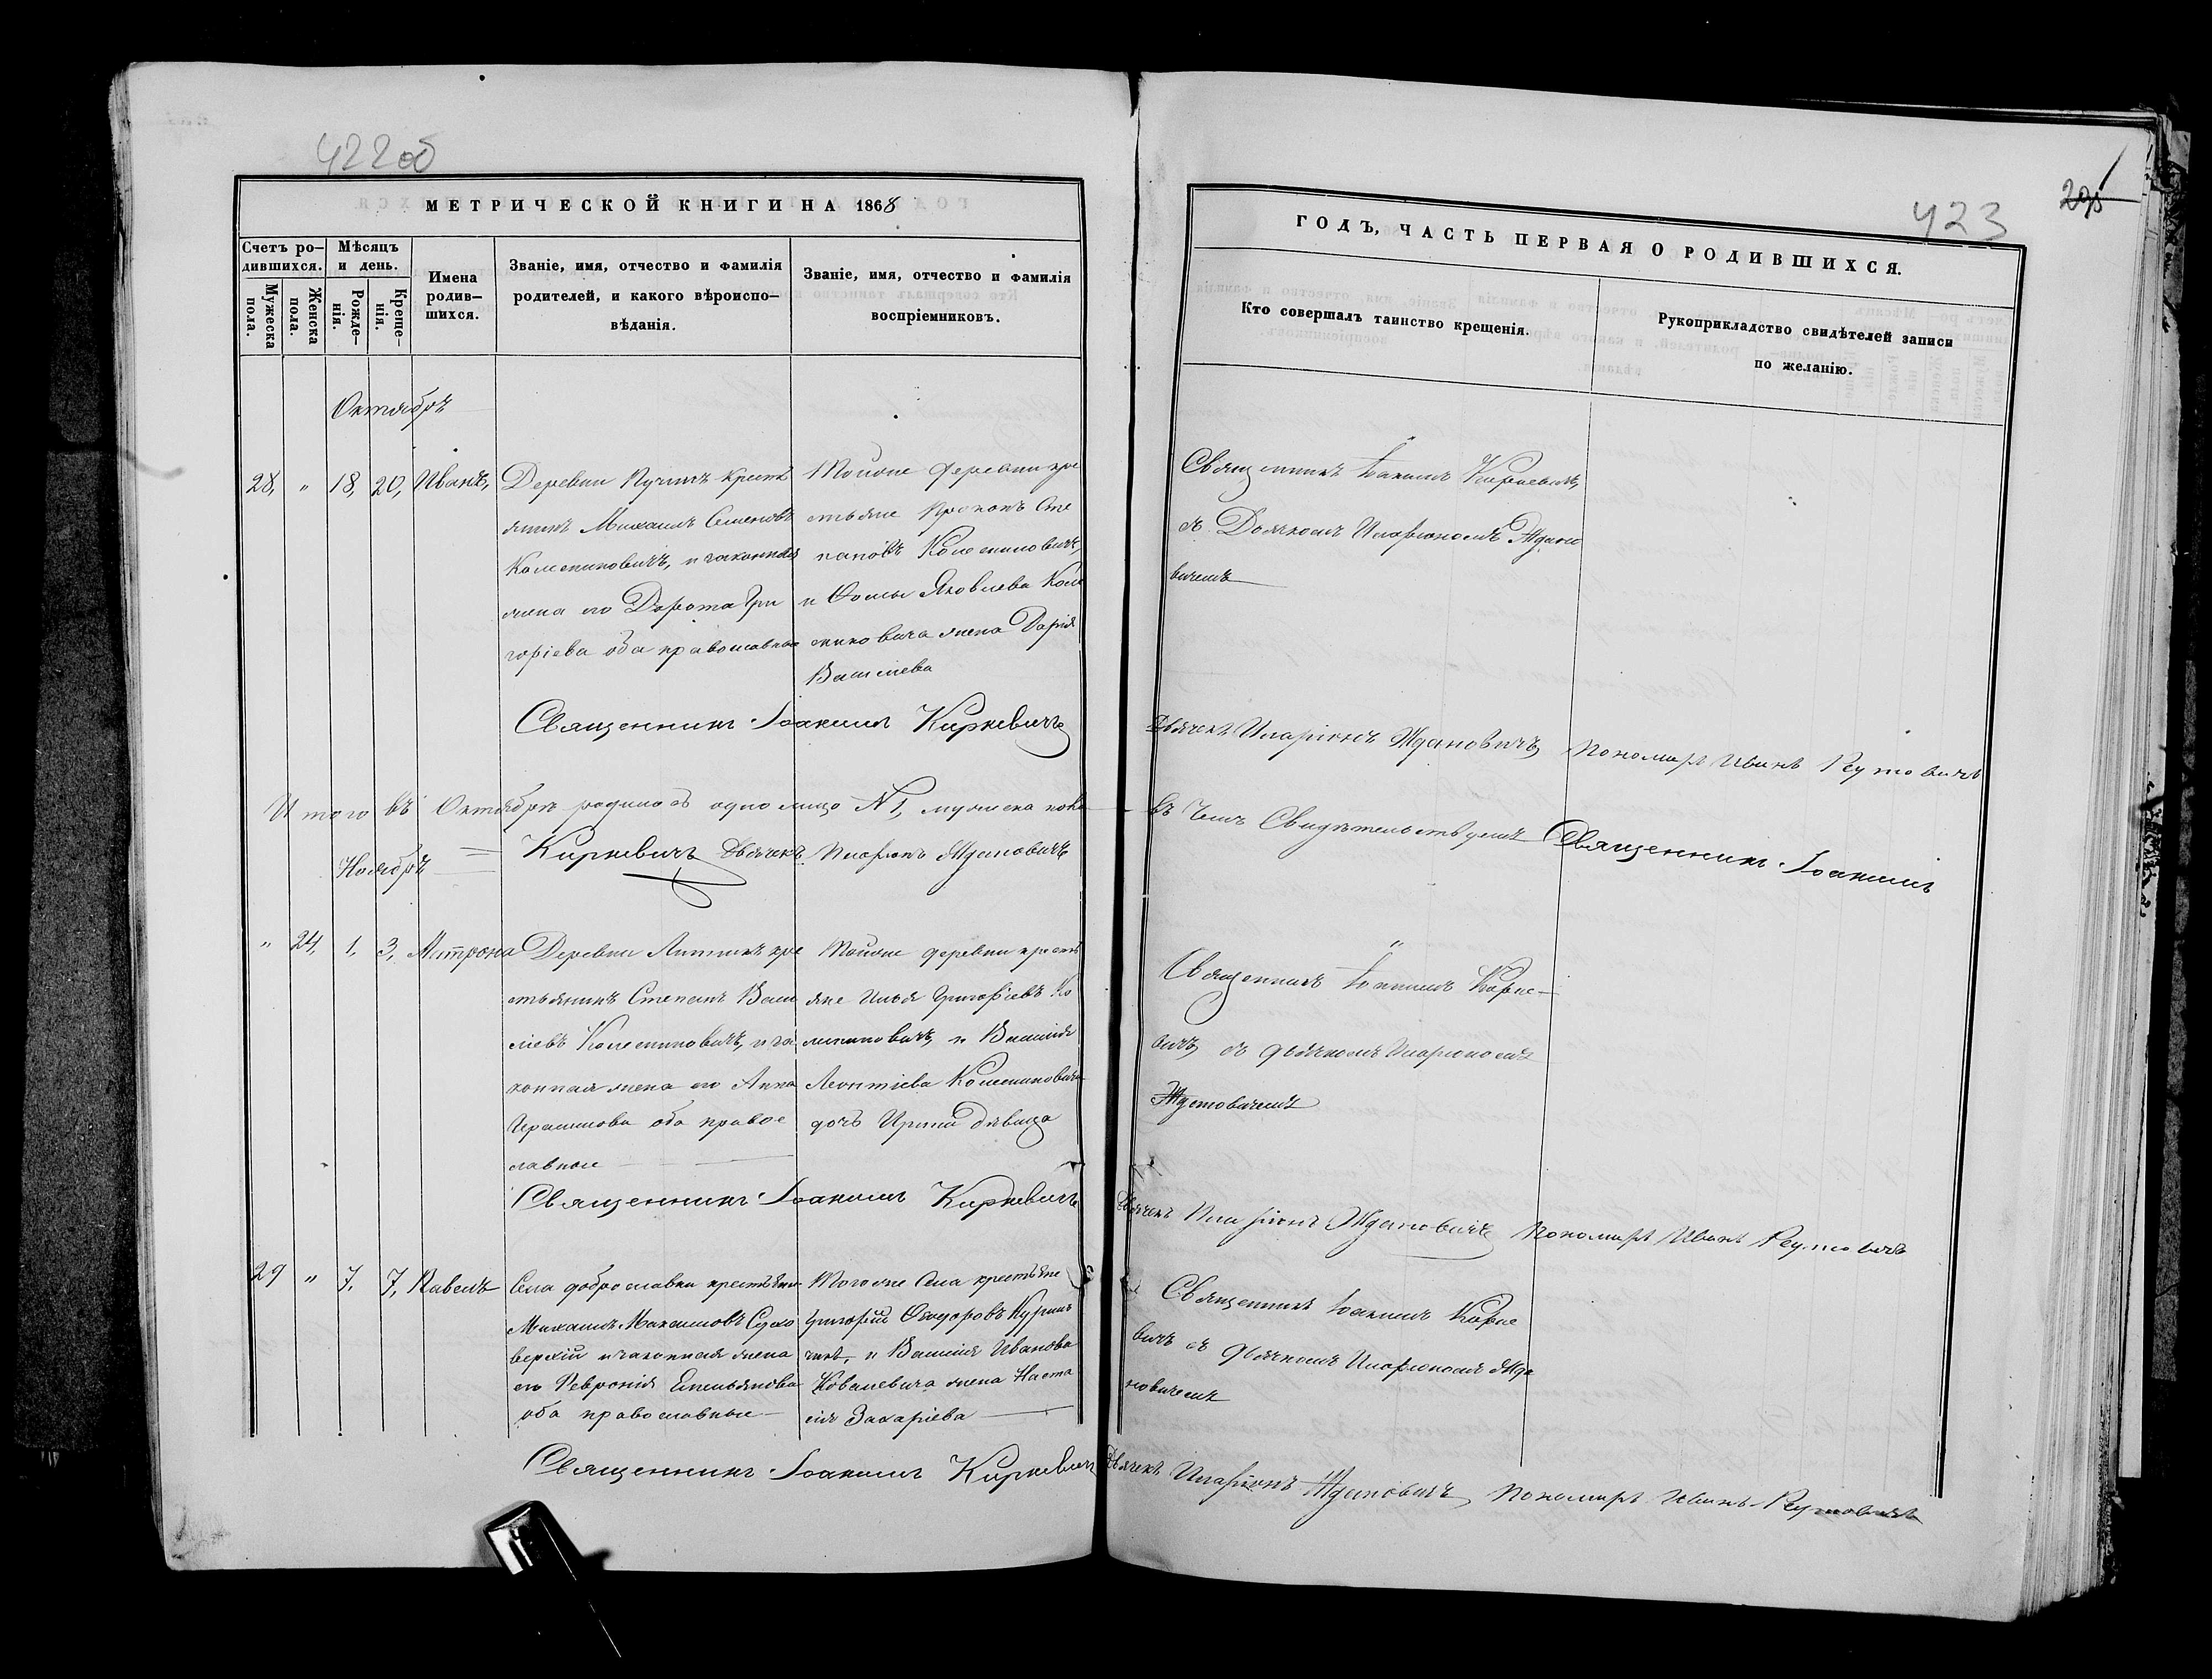 422об
МЕТРИЧЕСКОЙ КНИГИ НА 1868
Счетъ ро-
дившихся.
Мужеска
пола.
Женска
пола.
Мѣсяцъ
и день.
Рожде-
нія.
Креще-
нія.
Имена
родив-
шихся.
Званіе, имя, отчество и фамилія
родителей, и какого вѣроиспо-
вѣданія.
Званіе, имя, отчество и фамилія
воспріемниковъ.
Октябрь
28, " 18, 20, Иванъ,
Деревни кресть
янинъ Михаилъ Семеновъ
и законная
жена его Дорота Гри
горіева оба православные
Тойже деревни кре
стьяне Прокопъ Сте
пановъ
и Фомы Яковлева
жена Дарія
Василіева
Священникъ Іоакимъ Киркевичъ
Итого въ Октябрѣ родилось одно лицо N 1, мужеска пола
Киркевичъ Дьячекъ Иларіонъ Ждановичъ
Ноябрь
" 24, 1, 3, Матрона
Деревни кре
стьянинъ Степанъ Васи
ліевъ и за
конная жена его Анна
оба правос
лавные
Тойже деревни кресть
яне Илья Григоріевъ
и Василія
Леонтіева
дочь Ирина дѣвица
Священникъ Іоакимъ Киркевичъ
29 " 7, 7, Павелъ
Села Доброславки крестьянинъ
Михаилъ Максимовъ Сухо
верхій и законная жена
его Февронія Емельянова
оба православные
Тогоже села крестьяне
Григорій Ѳеодоровъ
и Василія Иванова
Ковалевича жена Наста
сія Захаріева
Священникъ Іоакимъ Киркевичъ
423
295
ГОДЪ, ЧАСТЬ ПЕРВАЯ О РОДИВШИХСЯ.
Кто совершалъ таинство крещенія.
Рукоприкладство свидѣтелей записи
по желанію.
Священникъ Іоакимъ Киркевичъ,
съ Дьячкомъ Иларіономъ Ждано
вичемъ
Дьячекъ Иларіонъ Ждановичъ Пономарь Иванъ Реутовичъ
въ чемъ Свидѣтельствуемъ Священникъ Іоакимъ
Священникъ Іоакимъ Кирке-
вичъ, съ дьячкомъ Иларіономъ
Ждановичемъ
Дьячекъ Иларіонъ Ждановичъ Пономарь Иванъ Реутовичъ
Священникъ Іоакимъ Кирке
вичъ съ дьячкомъ Иларіономъ Жда
новичемъ
Дьячекъ Иларіонъ Ждановичъ Пономарь Иванъ Реутовичъ